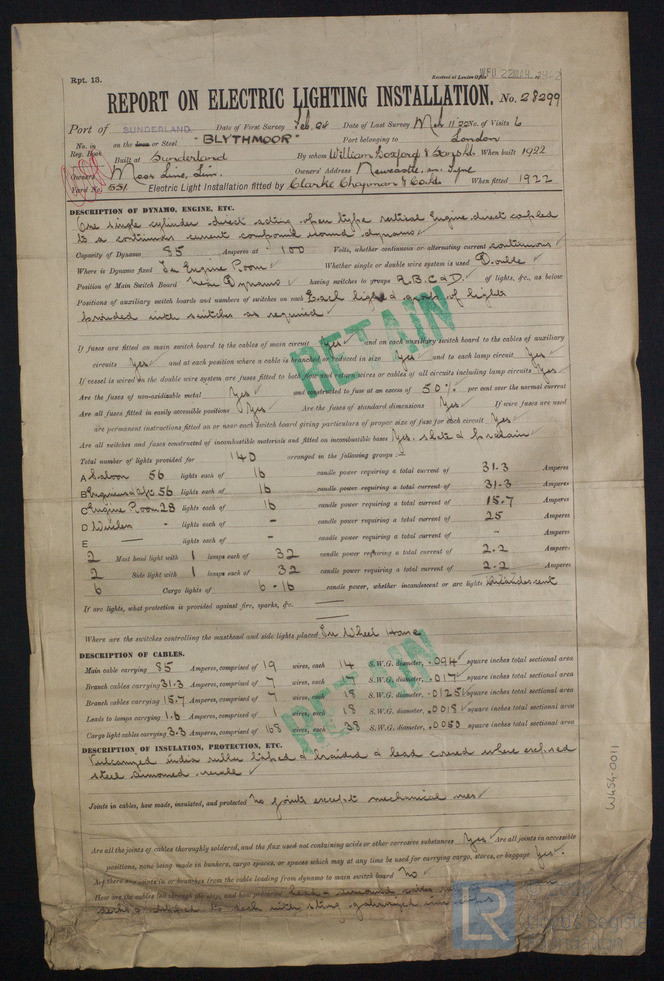 Rpt. 13.
Received at London Office
REPORT ON ELECTRIC LIGHTING INSTALLATION. No. 28299
Port of SUNDERLAND. Date of First Survey Feb. 24 Date of Last Survey Mch 11 '22 No. of Visits 6
No. in Reg. Book on the Iron or Steel "BLYTHMOOR" Port belonging to London
Built at Sunderland By whom William Doxford & Sons Ld When built 1922
Owners Moor Line, Lim. Owners' Address Newcastle on Tyne
Yard No. 551. Electric Light Installation fitted by Clarke Chapman & Co Ld When fitted 1922
DESCRIPTION OF DYNAMO, ENGINE, ETC.
One single cylinder direct acting open type vertical Engine direct coupled
to a continuous current compound wound dynamo
Capacity of Dynamo 85 Amperes at 100 Volts, whether continuous or alternating current continuous
Where is Dynamo fixed In Engine Room Whether single or double wire system is used Double
Position of Main Switch Board Near Dynamo having switches to groups A.B.C.&D. of lights, &c., as below
Positions of auxiliary switch boards and numbers of switches on each Each light & group of lights
provided with switches as required
RETAIN
If fuses are fitted on main switch board to the cables of main circuit Yes and on each auxiliary switch board to the cables of auxiliary
circuits Yes and at each position where a cable is branched or reduced in size Yes and to each lamp circuit Yes
If vessel is wired on the double wire system are fuses fitted to both flow and return wires or cables of all circuits including lamp circuits Yes
Are the fuses of non-oxidizable metal Yes and constructed to fuse at an excess of 50% per cent over the normal current
Are all fuses fitted in easily accessible positions Yes Are the fuses of standard dimensions Yes If wire fuses are used
are permanent instructions fitted on or near each switch board giving particulars of proper size of fuse for each circuit Yes
Are all switches and fuses constructed of incombustible materials and fitted on incombustible bases Yes, slate & porcelain
Total number of lights provided for 140 arranged in the following groups :—
A Saloon 56 lights each of 16 candle power requiring a total current of 31.3 Amperes
B Engineers &c 56 lights each of 16 candle power requiring a total current of 31.3 Amperes
C Engine Room 28 lights each of 16 candle power requiring a total current of 15.7 Amperes
D Wireless - lights each of - candle power requiring a total current of 25 Amperes
E — lights each of - candle power requiring a total current of - Amperes
2 Mast head light with 1 lamps each of 32 candle power requiring a total current of 2.2 Amperes
2 Side light with 1 lamps each of 32 candle power requiring a total current of 2.2 Amperes
6 Cargo lights of 6 - 16 candle power, whether incandescent or arc lights Incandescent
If arc lights, what protection is provided against fire, sparks, &c.
Where are the switches controlling the masthead and side lights placed In Wheel House
DESCRIPTION OF CABLES.
Main cable carrying 85 Amperes, comprised of 19 wires, each 14 S.W.G. diameter, .094 square inches total sectional area
Branch cables carrying 31.3 Amperes, comprised of 7 wires, each 17 S.W.G. diameter, .017 square inches total sectional area
Branch cables carrying 15.7 Amperes, comprised of 7 wires, each 18 S.W.G. diameter, .0125 square inches total sectional area
Leads to lamps carrying 1.6 Amperes, comprised of 1 wires, each 18 S.W.G. diameter, .0018 square inches total sectional area
Cargo light cables carrying 3.3 Amperes, comprised of 168 wires, each 38 S.W.G. diameter, .0050 square inches total sectional area
RETAIN
DESCRIPTION OF INSULATION, PROTECTION, ETC.
Vulcanized india rubber taped & braided & lead covered where exposed
steel armoured
Joints in cables, how made, insulated, and protected No joints except mechanical ones
Are all the joints of cables thoroughly soldered, and the flux used not containing acids or other corrosive substances Yes Are all joints in accessible
positions, none being made in bunkers, cargo spaces, or spaces which may at any time be used for carrying cargo, stores, or baggage Yes.
Are there any joints in or branches from the cable leading from dynamo to main switch board No
How are the cables led through the ship, and how protected Lead & armoured cables
decks & clipped to deck with strong galvanized iron clips
W454-0011
LR
Lloyd's Register
Foundation